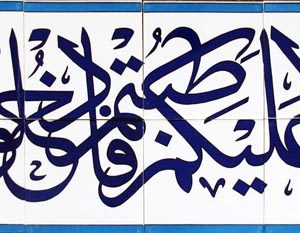 عليكم طبتم فادخلوها